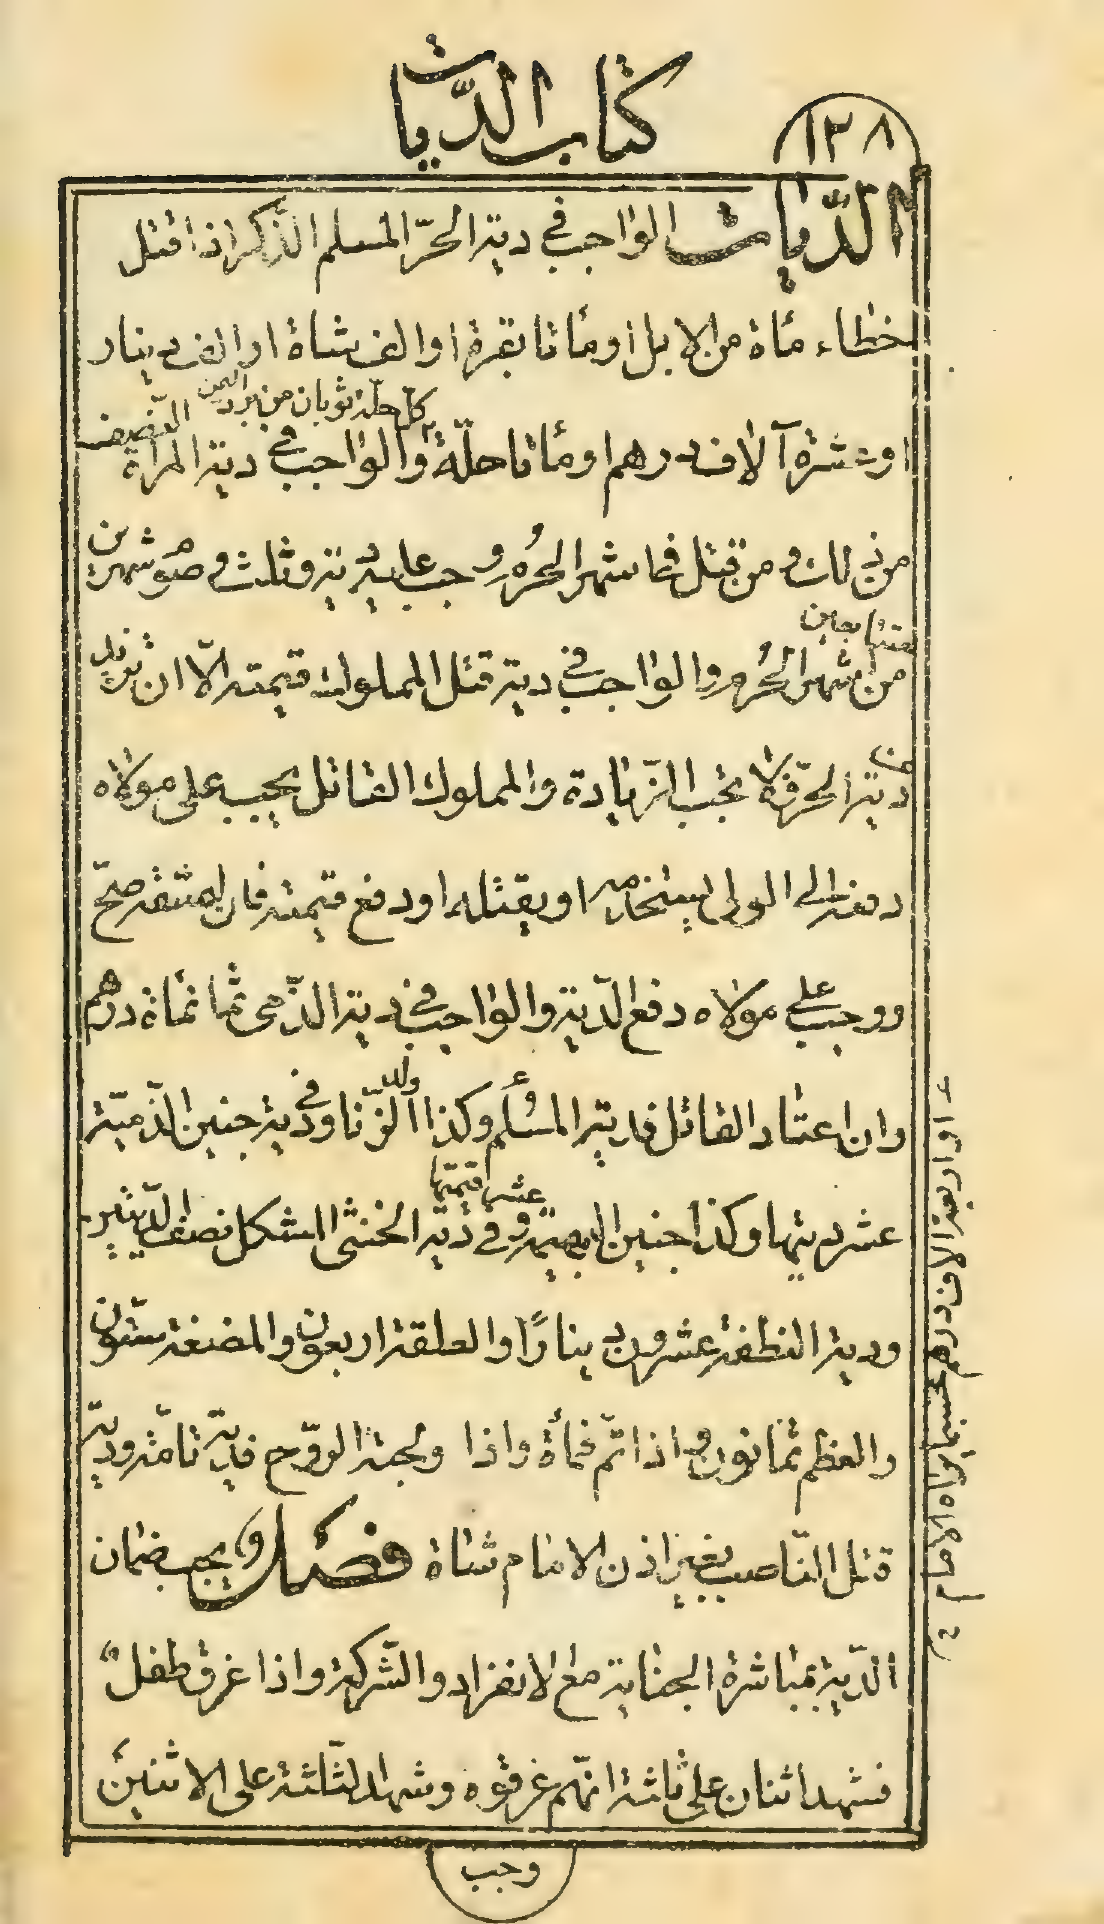 كتاب الديات
١٣٨
الدّيات الواجب في دية الحرّ المسلم الذّكر اذا قتل
خطاء مأة من الابل او مأتا بقرة او الف شاة او الف دينار
كلّ حلّة ثوبان من برد اليمن
او عشرة آلاف درهم او مأتا حلّة والواجب في دية المرأة النّصف
من ذلك ومن قتل في اشهر الحُرم وجب عليه دية وثلث وصوم شهرين
متتابعين
من اشهر الحُرم والواجب في دية قتل المملوك قيمته الّا ان تزيد
عن دية الحرّ فلا تجب الزّيادة والمملوك القاتل يجب على مولاه
دفعه الى الولى ليستخدمه او يقتله او دفع قيمته فان اعتقه صحّ
ووجب على مولاه دفع الدّية والواجب في دية الذّمى ثمانمأة درهم
وان اعتاد القاتل فدية المسلم وكذا ولد الزّنا وفي دية جنين الذّميّة
عشر قيمتها
عشر ديتها وكذا جنين البهيمة وفي دية الخنثى المشكل نصف الدّيتين
ودية النطفة عشرون دينارًا والعلقة اربعون والمضغة ستّون
والعظم ثمانون واذا تمّ فمأة واذا ولجته الرّوح فدية تامّة ودية
قتل النّاصب بغير اذن الامام شاة فصل ويجب ضمان
الدّية بمباشرة الجناية مع الانفراد والشّركة واذا غرق طفل
فشهد اثنان على ثلثة انّهم غرقوه وشهد الثّلثة على الاثنين
وجب
او اربعة الاف درهم حسبما يراه الامام